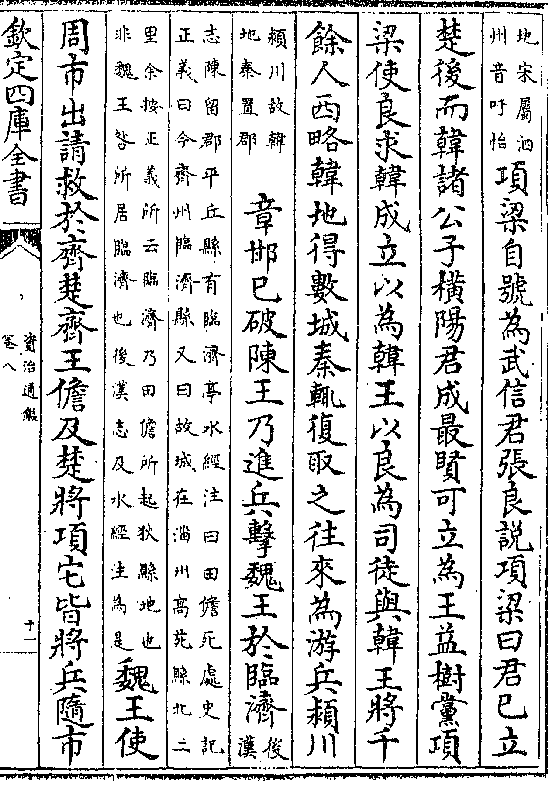 地宋屬泗
州音吁怡
項梁自號為武信君張良說項梁曰君已立
楚後而韓諸公子橫陽君成最賢可立為王益樹黨項
梁使良求韓成立以為韓王以良為司徒與韓王將千
餘人西略韓地得數城秦輒復取之往來為游兵潁川
潁川故韓
地秦置郡
章邯已破陳王乃進兵擊魏王於臨濟
後
漢
志陳留郡平丘縣有臨濟亭水經注曰田儋死處史記
正義曰今齊州臨濟縣又曰故城在淄州高苑縣北二
里余按正義所云臨濟乃田儋所起狄縣地也
非魏王咎所居臨濟也後漢志及水經注為是
魏王使
周市出請救於齊楚齊王儋及楚將項它皆將兵隨市
欽定四庫全書
資治通鑑
卷八
十一